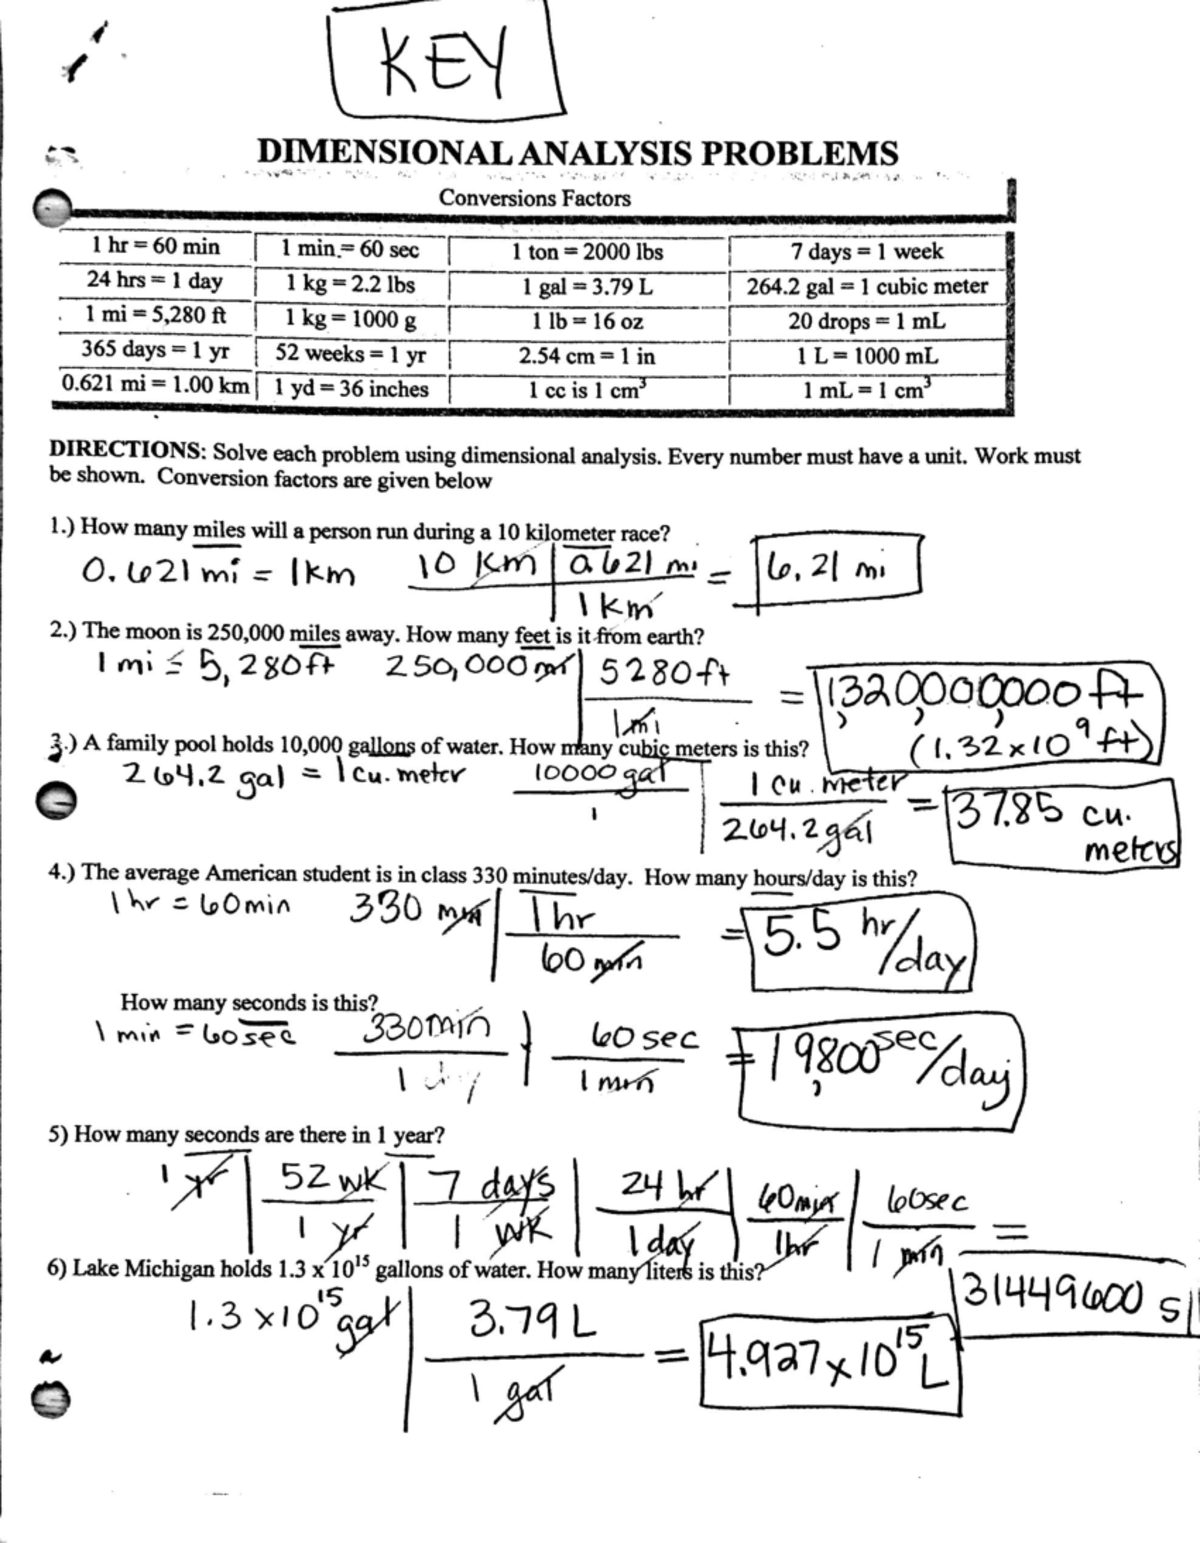 KEY
DIMENSIONAL ANALYSIS PROBLEMS
Conversions Factors
1 hr = 60 min 1 min = 60 sec 1 ton = 2000 lbs 7 days = 1 week
24 hrs = 1 day 1 kg = 2.2 lbs 1 gal = 3.79 L 264.2 gal = 1 cubic meter
1 mi = 5,280 ft 1 kg = 1000 g 1 lb = 16 oz 20 drops = 1 mL
365 days = 1 yr 52 weeks = 1 yr 2.54 cm = 1 in 1 L = 1000 mL
0.621 mi = 1.00 km 1 yd = 36 inches 1 cc is 1 cm³ 1 mL = 1 cm³
DIRECTIONS: Solve each problem using dimensional analysis. Every number must have a unit. Work must
be shown. Conversion factors are given below
1.) How many miles will a person run during a 10 kilometer race?
0.621 mi = 1km 10 km 0.621 mi = 6.21 mi
1 km
2.) The moon is 250,000 miles away. How many feet is it from earth?
1 mi = 5,280ft 250,000 mi 5280ft = 1,320,000,000 ft
1mi (1.32x10⁹ ft)
3.) A family pool holds 10,000 gallons of water. How many cubic meters is this?
264.2 gal = 1cu. meter 10000 gal 1 cu. meter = 37.85 cu.
1 264.2 gal meters
4.) The average American student is in class 330 minutes/day. How many hours/day is this?
1hr = 60min 330 min 1hr = 5.5 hr/day
60 min
How many seconds is this?
1 min = 60sec 330min 60 sec = 19,800 sec/day
1 day 1 min
5) How many seconds are there in 1 year?
1 yr 52 wk 7 days 24 hr 60min 60sec =
1 yr 1 wk 1 day 1hr 1 min
6) Lake Michigan holds 1.3 x 10¹⁵ gallons of water. How many liters is this?
31449600 s
1.3 x10¹⁵ gal 3.79 L = 4.927x10¹⁵ L
1 gal